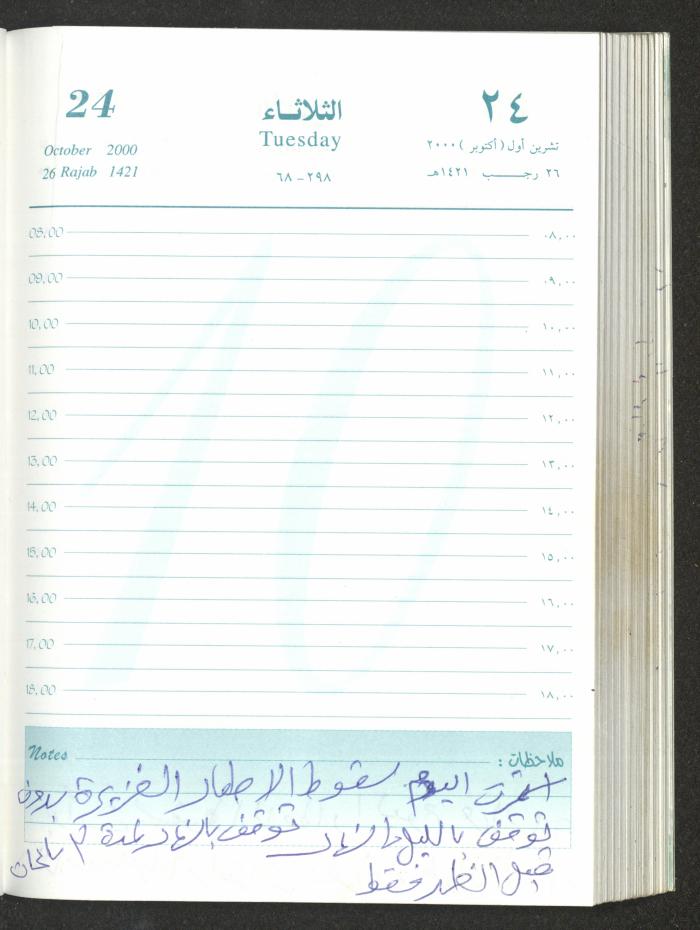 24 الثلاثاء ٢٤
Tuesday
October 2000 تشرين أول (أكتوبر) ٢٠٠٠
26 Rajab 1421 ٢٩٨ - ٦٨ ٢٦ رجب ١٤٢١هـ
08,00 ٠٨,٠٠
09,00 ٠٩,٠٠
10,00 ١٠,٠٠
11,00 ١١,٠٠
12,00 ١٢,٠٠
13,00 ١٣,٠٠
14,00 ١٤,٠٠
15,00 ١٥,٠٠
16,00 ١٦,٠٠
17,00 ١٧,٠٠
18,00 ١٨,٠٠
10
Notes ملاحظات :
استمرت اليوم سقوط الامطار الغزيرة بدون
توقف بالليل والنهار توقف بالنهار لمدة ٣ ساعات
قبل الظهر فقط